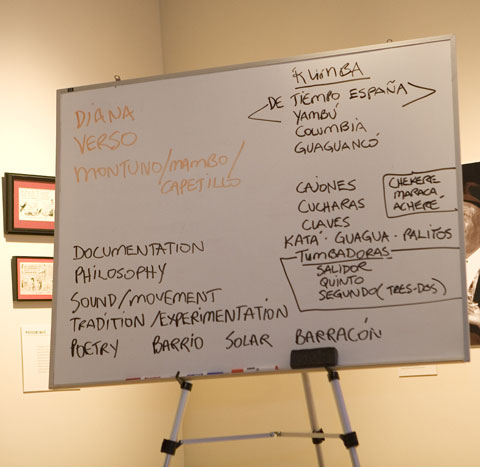 DIANA
VERSO
MONTUNO/MAMBO/
CAPETILLO
DOCUMENTATION
PHILOSOPHY
SOUND/MOVEMENT
TRADITION/EXPERIMENTATION
POETRY BARRIO SOLAR BARRACÓN
< DE TIEMPO ESPAÑA >
YAMBÚ
COLUMBIA
GUAGUANCÓ
CAJONES
CUCHARAS
CLAVES
CHEKERE
MARACA
ACHERÉ
KATÁ · GUAGUA · PALITOS
TUMBADORAS
SALIDOR
QUINTO
SEGUNDO (TRES-DOS)